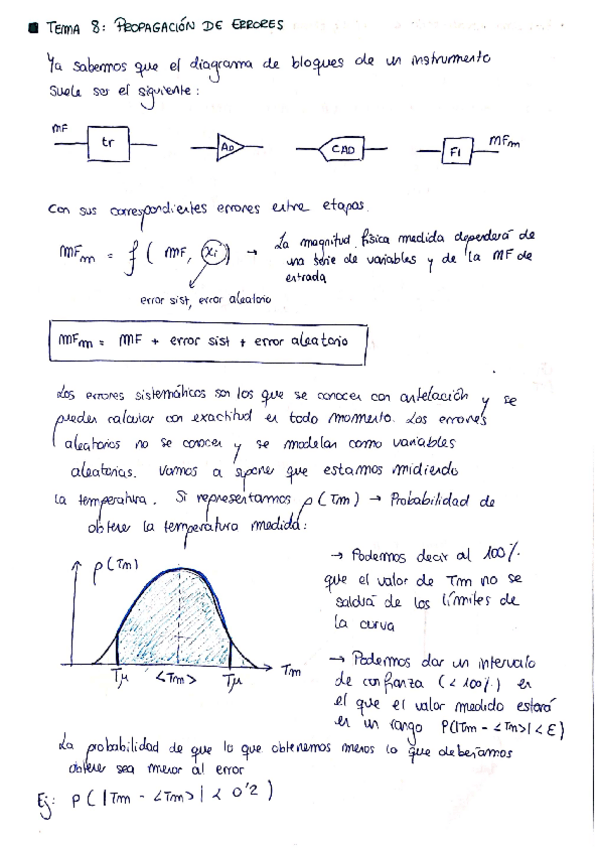 ■ TEMA 8: PROPAGACIÓN DE ERRORES
Ya sabemos que el diagrama de bloques de un instrumento
suele ser el siguiente:
MF tr AO CAD FI MFm
Con sus correspondientes errores entre etapas.
MFm = f ( MF, xi ) → La magnitud física medida dependerá de
una serie de variables y de la MF de
entrada
error sist, error aleatorio
MFm = MF + error sist + error aleatorio
Los errores sistemáticos son los que se conocen con antelación y se
pueden calcular con exactitud en todo momento. Los errores
aleatorios no se conocen y se modelan como variables
aleatorias. Vamos a suponer que estamos midiendo
la temperatura. Si representamos ρ(Tm) → Probabilidad de
obtener la temperatura medida:
ρ(Tm)
Tμ <Tm> Tμ Tm
→ Podemos decir al 100%
que el valor de Tm no se
saldrá de los límites de
la curva
→ Podemos dar un intervalo
de confianza (<100%) en
el que el valor medido estará
en un rango P(|Tm - <Tm>| < ε)
La probabilidad de que lo que obtenemos menos lo que deberíamos
obtener sea menor al error
Ej: P(|Tm - <Tm>| < 0'2)